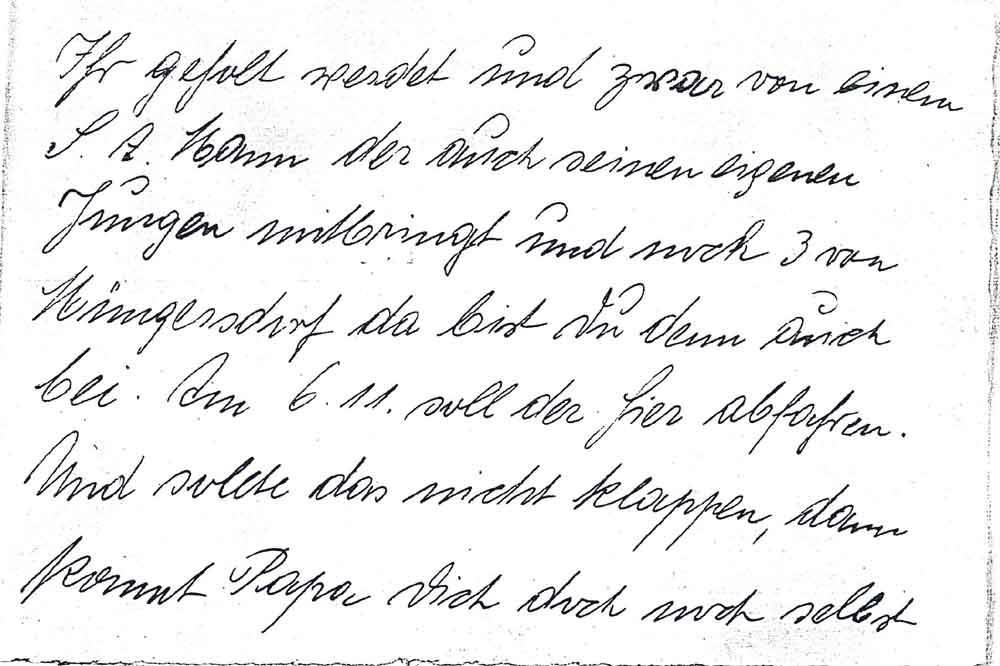 Ihr gehollt werdet und zwar von einem
S. A. Mann der auch seinen eigenen
Jungen mitbringt und noch 3 von
Müngersdorf da bist Du denn auch
bei. Am 6.11. soll der hier abfahren.
Und sollte das nicht klappen, dann
kommt Papa Dich doch noch selbst